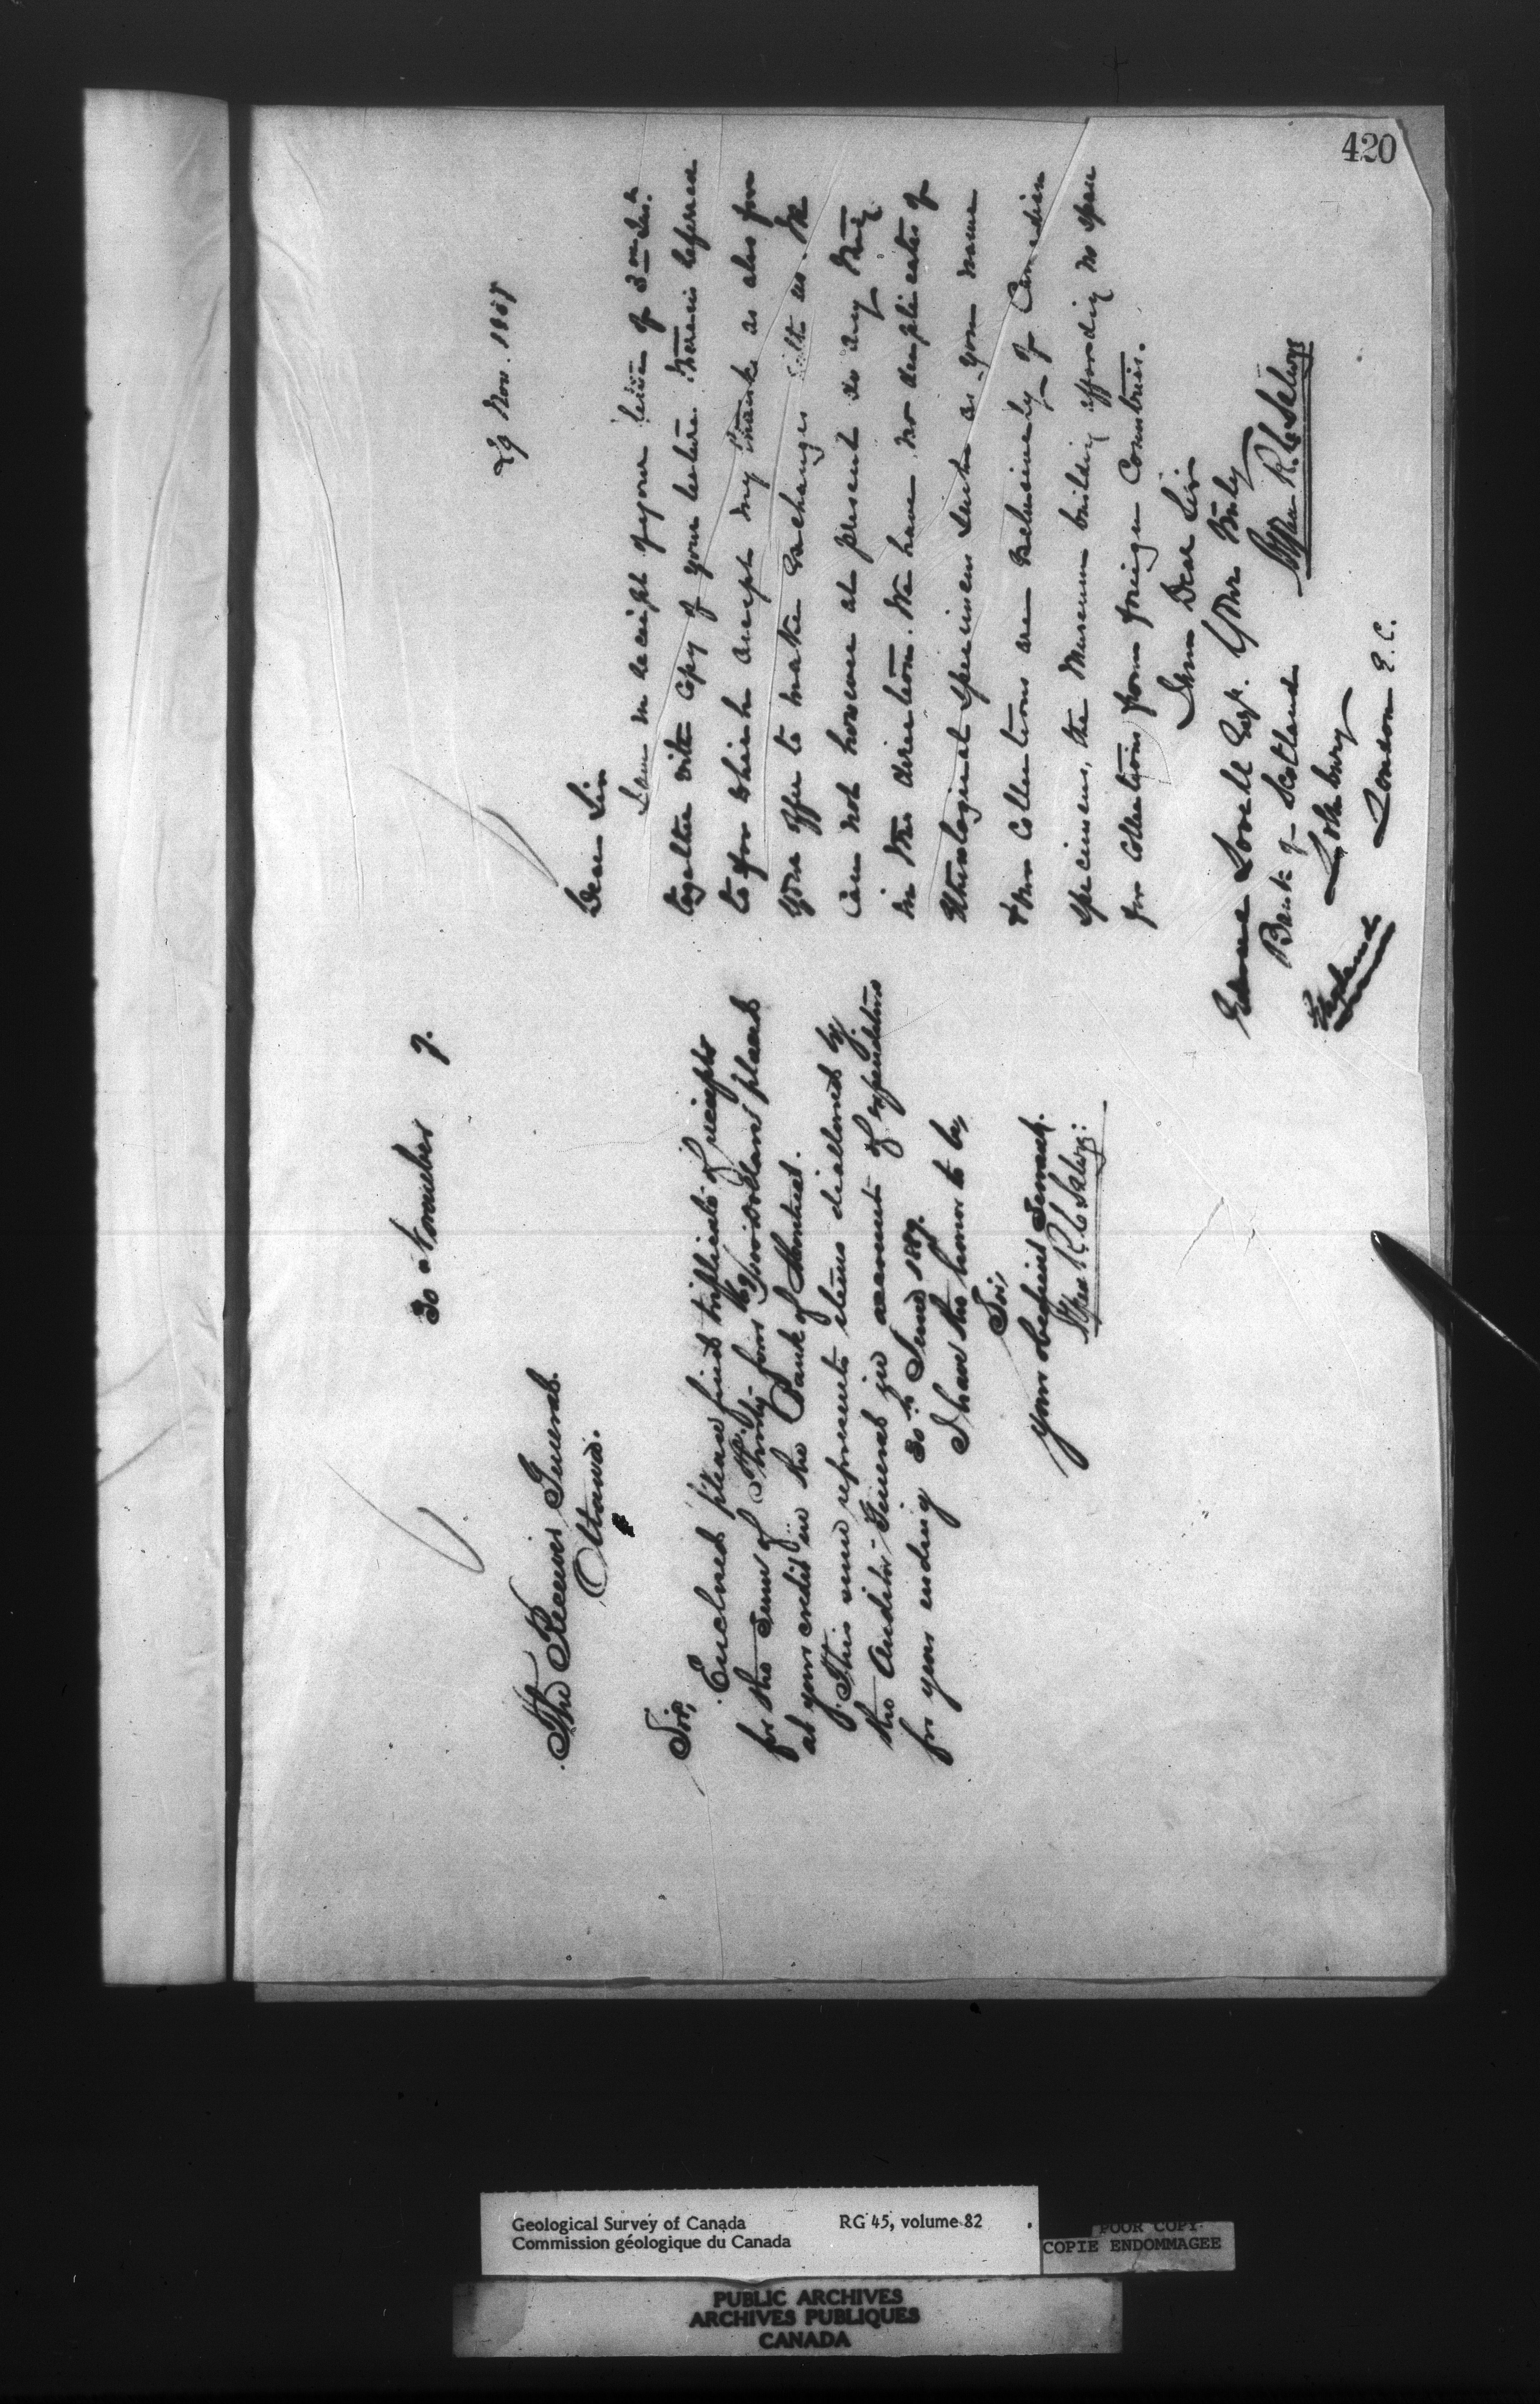 420
30 November 7.
The Receiver General.
Ottawa.
Sir,
Enclosed please find triplicate of receipts
for the sum of Thirty four 49/100 Dollars placed
at your credit in the Bank of Montreal.
This sum represents items disallowed by
the Auditor General in account of expenditures
for year ending 30th June 1887.
I have the honor to be,
Sir,
your obedient Servant.
Alfred R. C. Selwyn
29 Nov. 1887
Dear Sir
I am in receipt of your letter of 3rd Inst.
together with copy of your lecture therein referred
to for which accept my thanks as also for
your offer to make exchanges with us. We
can not however at present do any thing
in this direction. We have no duplicates of
Ethnological specimens such as you name
& our collections are exclusively of Canadian
specimens, the Museum building affording no space
for collections from foreign Countries.
I am Dear Sir
Yours truly
Alfred R. C. Selwyn
Lovell Esq.
Bank of Scotland
Lothbury
London E.C.
England
Geological Survey of Canada RG 45, volume 82
Commission géologique du Canada
POOR COPY
COPIE ENDOMMAGEE
PUBLIC ARCHIVES
ARCHIVES PUBLIQUES
CANADA